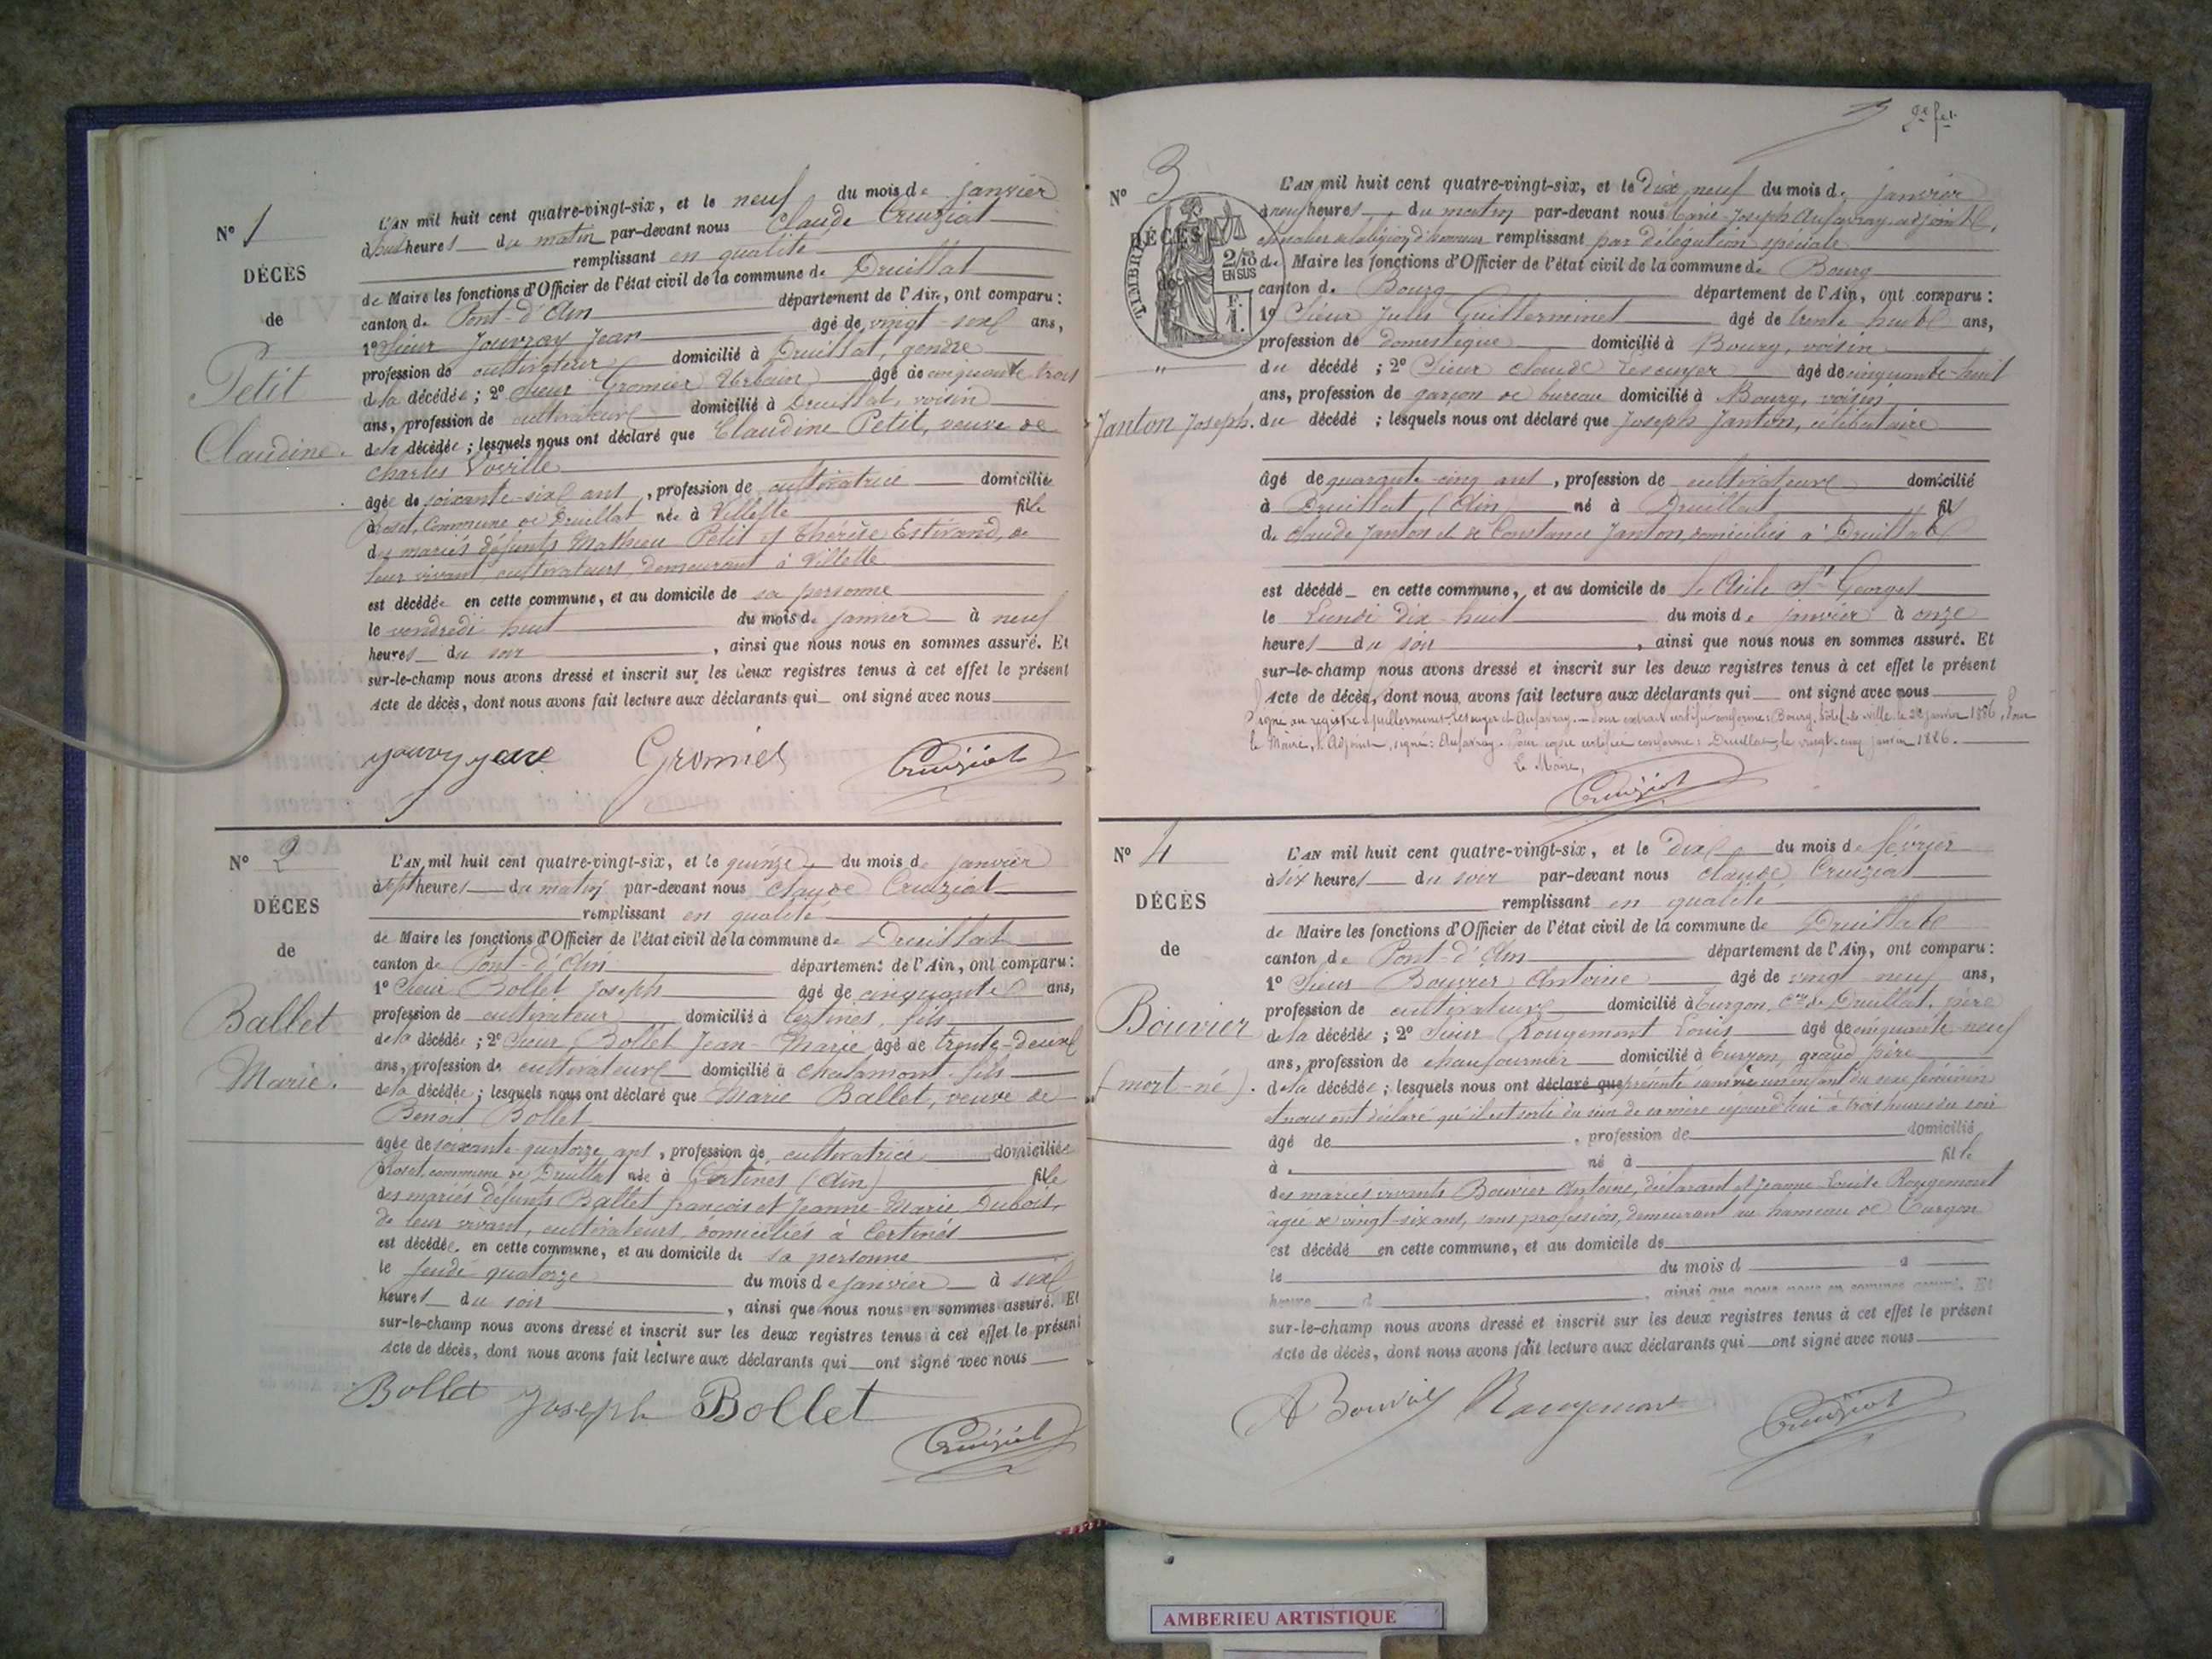 N° 1
DÉCÈS
de
Petit
Claudine.
L'AN mil huit cent quatre-vingt-six, et le neuf du mois de janvier
à huit heures du matin par-devant nous Claude Cruiziat
remplissant en qualité
de Maire les fonctions d'Officier de l'état civil de la commune de Druillat
canton de Pont-d'Ain département de l'Ain, ont comparu :
1° Sieur Jouvray Jean âgé de vingt-six ans,
profession de cultivateur domicilié à Druillat, gendre
de la décédée ; 2° Sieur Gromier Urbain âgé de cinquante trois
ans, profession de cultivateur domicilié à Druillat, voisin
de la décédée ; lesquels nous ont déclaré que Claudine Petit, veuve de
Charles Voville
âgée de soixante-six ans, profession de cultivatrice domiciliée
à Rosset, commune de Druillat née à Villette fille
des mariés défunts Mathieu Petit et Thérèse Estivand, de
leur vivant, cultivateurs, demeurant à Villette
est décédée en cette commune, et au domicile de sa personne
le vendredi huit du mois de janvier à neuf
heures du soir, ainsi que nous nous en sommes assuré. Et
sur-le-champ nous avons dressé et inscrit sur les deux registres tenus à cet effet le présent
Acte de décès, dont nous avons fait lecture aux déclarants qui ont signé avec nous
Gromier Cruiziat
N° 2
DÉCÈS
de
Ballet
Marie.
L'AN mil huit cent quatre-vingt-six, et le quinze du mois de janvier
à sept heures du matin par-devant nous Claude Cruiziat
remplissant en qualité
de Maire les fonctions d'Officier de l'état civil de la commune de Druillat
canton de Pont-d'Ain département de l'Ain, ont comparu :
1° Sieur Bollet Joseph âgé de cinquante ans,
profession de cultivateur domicilié à Certines, fils
de la décédée ; 2° Sieur Bollet Jean-Marie âgé de trente-deux
ans, profession de cultivateur domicilié à Chalamont, fils
de la décédée ; lesquels nous ont déclaré que Marie Ballet, veuve de
Benoit Bollet
âgée de soixante quatorze ans, profession de cultivatrice domiciliée
à Rosset, commune de Druillat née à Certines (Ain) fille
des mariés défunts Ballet françois et Jeanne-Marie Dubois,
de leur vivant, cultivateurs, domiciliés à Certines
est décédée en cette commune, et au domicile de sa personne
le jeudi quatorze du mois de janvier à six
heures du soir, ainsi que nous nous en sommes assuré. Et
sur-le-champ nous avons dressé et inscrit sur les deux registres tenus à cet effet le présent
Acte de décès, dont nous avons fait lecture aux déclarants qui ont signé avec nous
Bollet Joseph Bollet
Cruiziat
N° 3
DÉCÈS
TIMBRE
2/10
EN SUS
Janton Joseph.
L'AN mil huit cent quatre-vingt-six, et le dix neuf du mois de janvier
à neuf heures du matin par-devant nous Marie-Joseph Aufavray adjoint,
chevalier de la légion d'honneur remplissant par délégation spéciale
de Maire les fonctions d'Officier de l'état civil de la commune de Bourg
canton de Bourg département de l'Ain, ont comparu :
1° Sieur Jules Guillerminet âgé de trente huit ans,
profession de domestique domicilié à Bourg, voisin
du décédé ; 2° Sieur Claude Lescuyer âgé de cinquante-huit
ans, profession de garçon de bureau domicilié à Bourg, voisin
du décédé ; lesquels nous ont déclaré que Joseph Janton, célibataire
âgé de quarante-cinq ans, profession de cultivateur domicilié
à Druillat (Ain) né à Druillat fils
de Claude Janton et de Constance Janton, domiciliés à Druillat
est décédé en cette commune, et au domicile de l'Asile St Georges
le Lundi dix huit du mois de janvier à onze
heures du soir, ainsi que nous nous en sommes assuré. Et
sur-le-champ nous avons dressé et inscrit sur les deux registres tenus à cet effet le présent
Acte de décès, dont nous avons fait lecture aux déclarants qui ont signé avec nous
Signé au registre : Guillerminet, Lescuyer et Aufavray. Pour extrait certifié conforme : Bourg, hôtel de ville, le janvier 1886, Pour
le Maire, l'Adjoint, signé : Aufavray. Pour copie certifiée conforme : Druillat, le vingt-cinq janvier 1886.
Le Maire,
Cruiziat
N° 4
DÉCÈS
de
Bouvier
(mort-né).
L'AN mil huit cent quatre-vingt-six, et le dix du mois de février
à six heures du soir par-devant nous Claude Cruiziat
remplissant en qualité
de Maire les fonctions d'Officier de l'état civil de la commune de Druillat
canton de Pont-d'Ain département de l'Ain, ont comparu :
1° Sieur Bouvier Antoine âgé de vingt-neuf ans,
profession de cultivateur domicilié à Turgon, Cne de Druillat, père
de la décédée ; 2° Sieur Rougemont Louis âgé de cinquante-neuf
ans, profession de chaufournier domicilié à Turgon, grand père
de la décédée ; lesquels nous ont déclaré que présenté sans vie un enfant du sexe féminin
et nous ont déclaré qu'il est sorti du sein de sa mère aujourd'hui à trois heures du soir
âgé de, profession de domicilié
à né à fille
des mariés vivants Bouvier Antoine, déclarant et Jeanne Louise Rougemont
âgée de vingt-six ans, sans profession, demeurant au hameau de Turgon
est décédé en cette commune, et au domicile de
le du mois d à
heure d, ainsi que nous nous en sommes assuré. Et
sur-le-champ nous avons dressé et inscrit sur les deux registres tenus à cet effet le présent
Acte de décès, dont nous avons fait lecture aux déclarants qui ont signé avec nous
A Bouvier Rougemont Cruiziat
AMBERIEU ARTISTIQUE